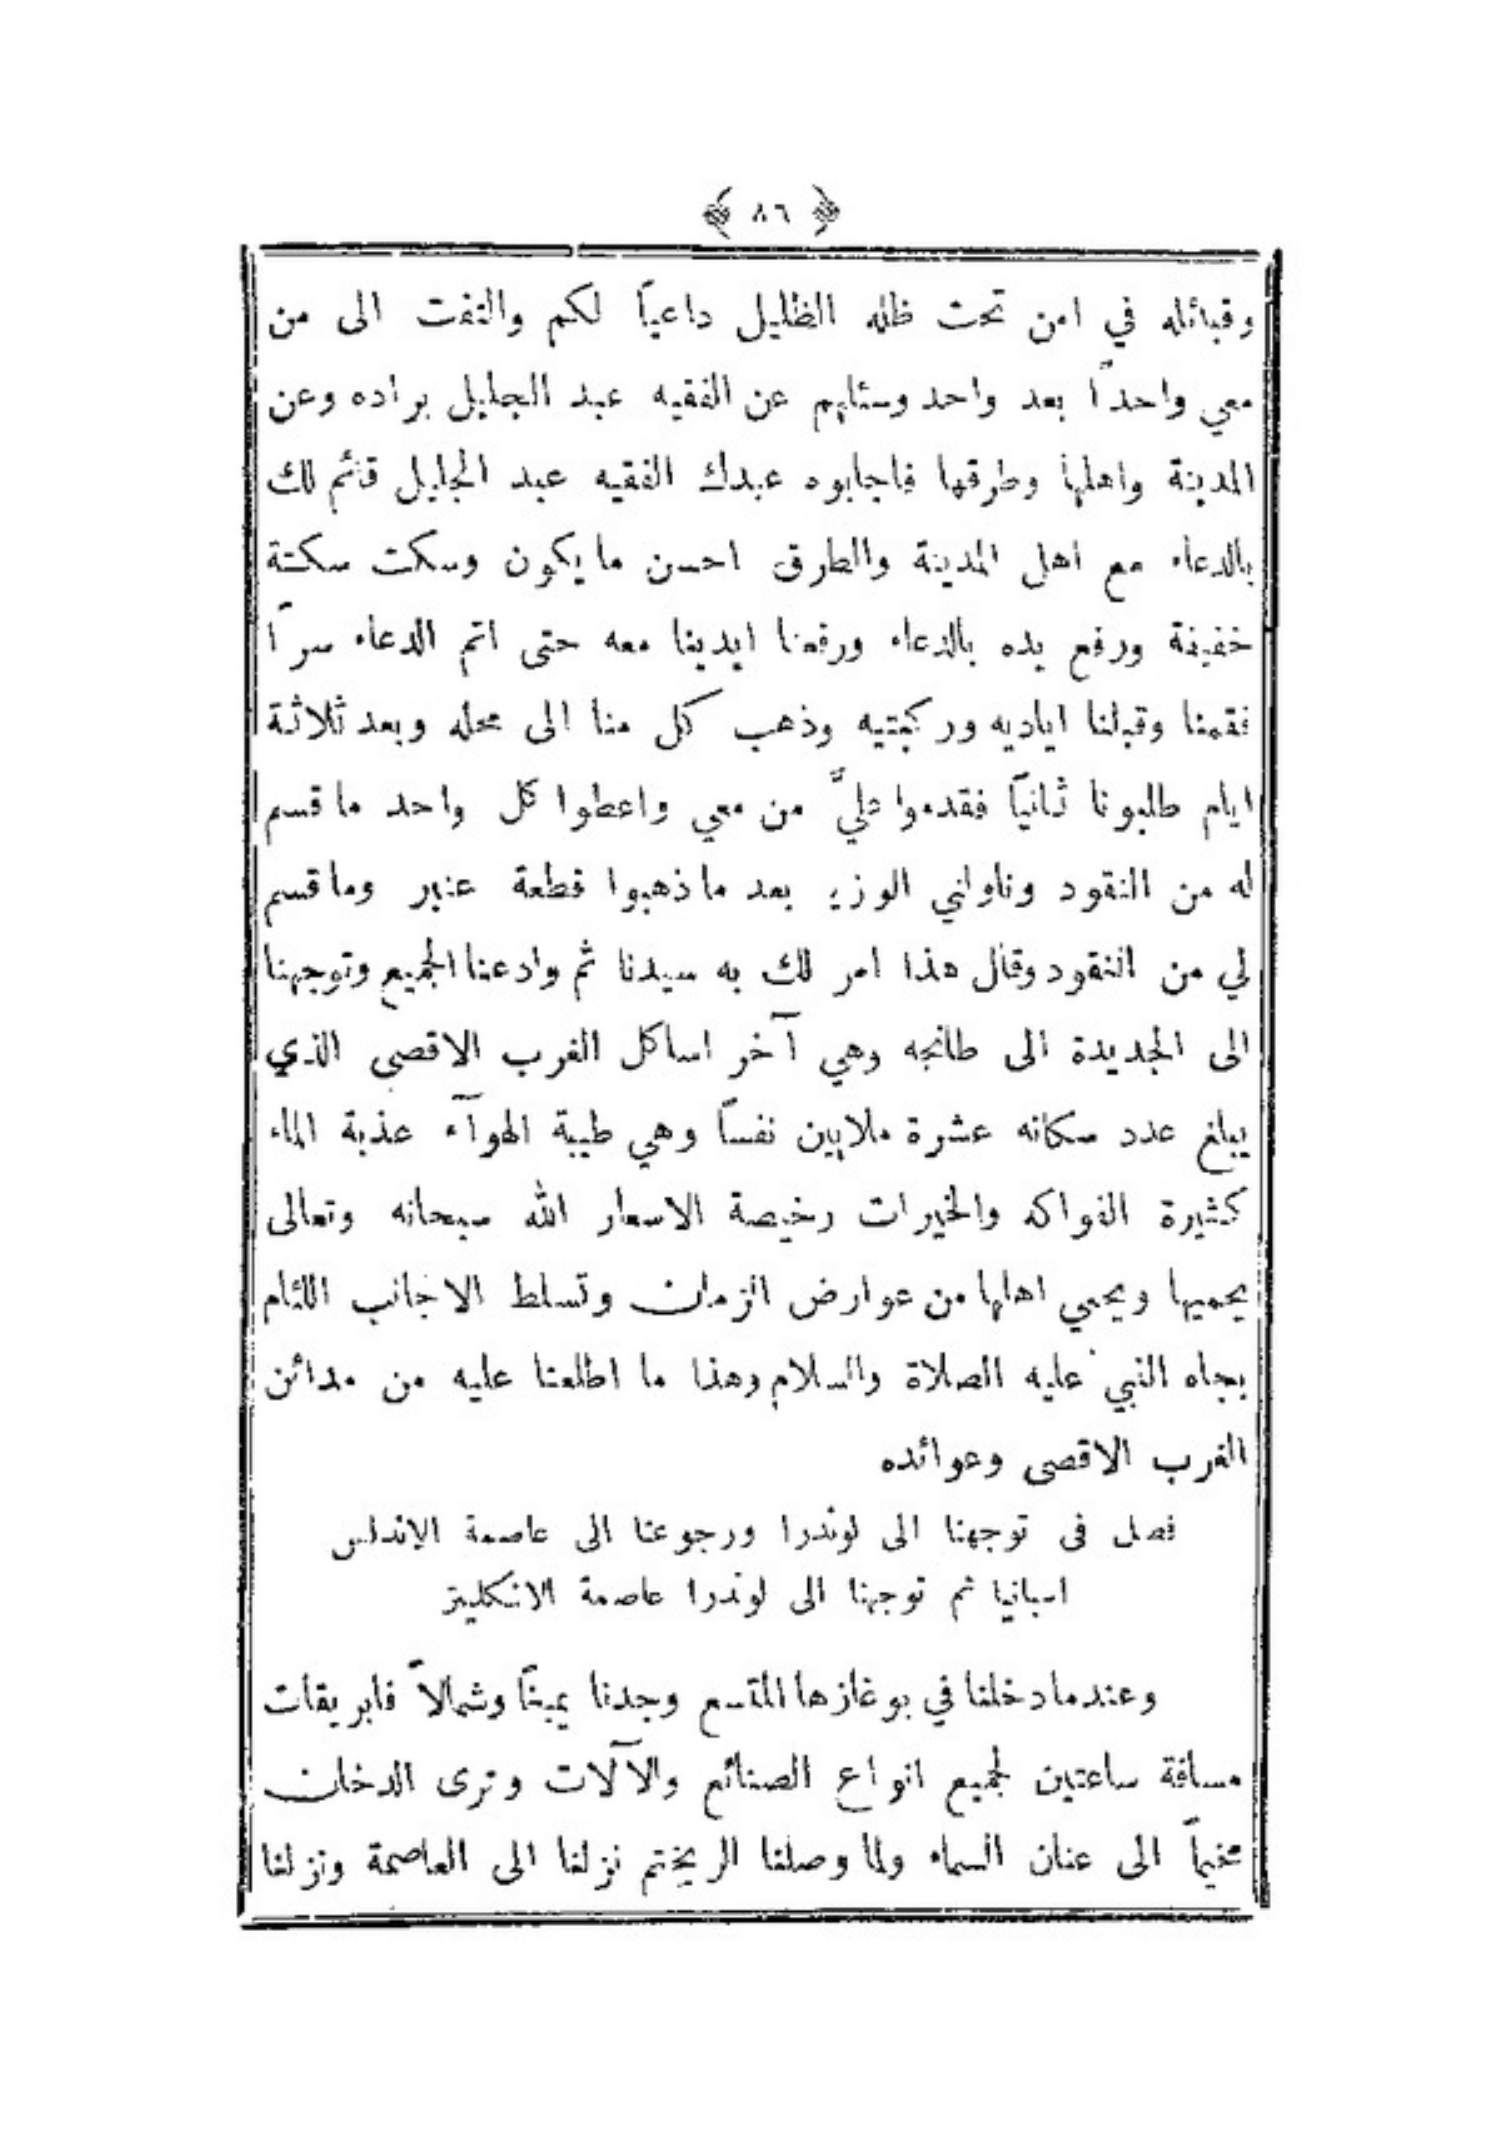 ﴿ ٨٦ ﴾
وقبائله في امن تحت ظله الظليل داعياً لكم والتفت الى من
معي واحداً بعد واحد وسئلهم عن الفقيه عبد الجليل براده وعن
المدينة واهلها وطرقها فاجابوه عبدك الفقيه عبد الجليل قائم لك
بالدعاء مع اهل المدينة والطرق احسن ما يكون وسكت سكتة
خفيفة ورفع يده بالدعاء ورفعنا ايدينا معه حتى اتم الدعاء سراً
فقمنا وقبلنا اياديه وركبتيه وذهب كل منا الى محله وبعد ثلاثة
ايام طلبونا ثانياً فقدموا عليَّ من معي واعطوا كل واحد ما قسم
له من النقود وناولني الوزير بعد ما ذهبوا قطعة عنبر وما قسم
لي من النقود وقال هذا امر لك به سيدنا ثم وادعنا الجميع وتوجهنا
الى الجديدة الى طانجه وهي آخر اساكل الغرب الاقصى الذي
يبلغ عدد سكانه عشرة ملايين نفساً وهي طيبة الهوآء عذبة الماء
كثيرة الفواكه والخيرات رخيصة الاسعار الله سبحانه وتعالى
يحميها ويحمي اهلها من عوارض الزمان وتسلط الاجانب اللئام
بجاه النبي عليه الصلاة والسلام وهذا ما اطلعنا عليه من مدائن
الغرب الاقصى وعوائده
فصل فى توجهنا الى لوندرا ورجوعنا الى عاصمة الاندلس
اسبانيا ثم توجهنا الى لوندرا عاصمة الانكليز
وعندما دخلنا في بوغازها المتسع وجدنا يميناً وشمالاً فابريقات
مسافة ساعتين لجميع انواع الصنائع والآلات وترى الدخان
مخيماً الى عنان السماء ولما وصلنا الريختم نزلنا الى العاصمة ونزلنا